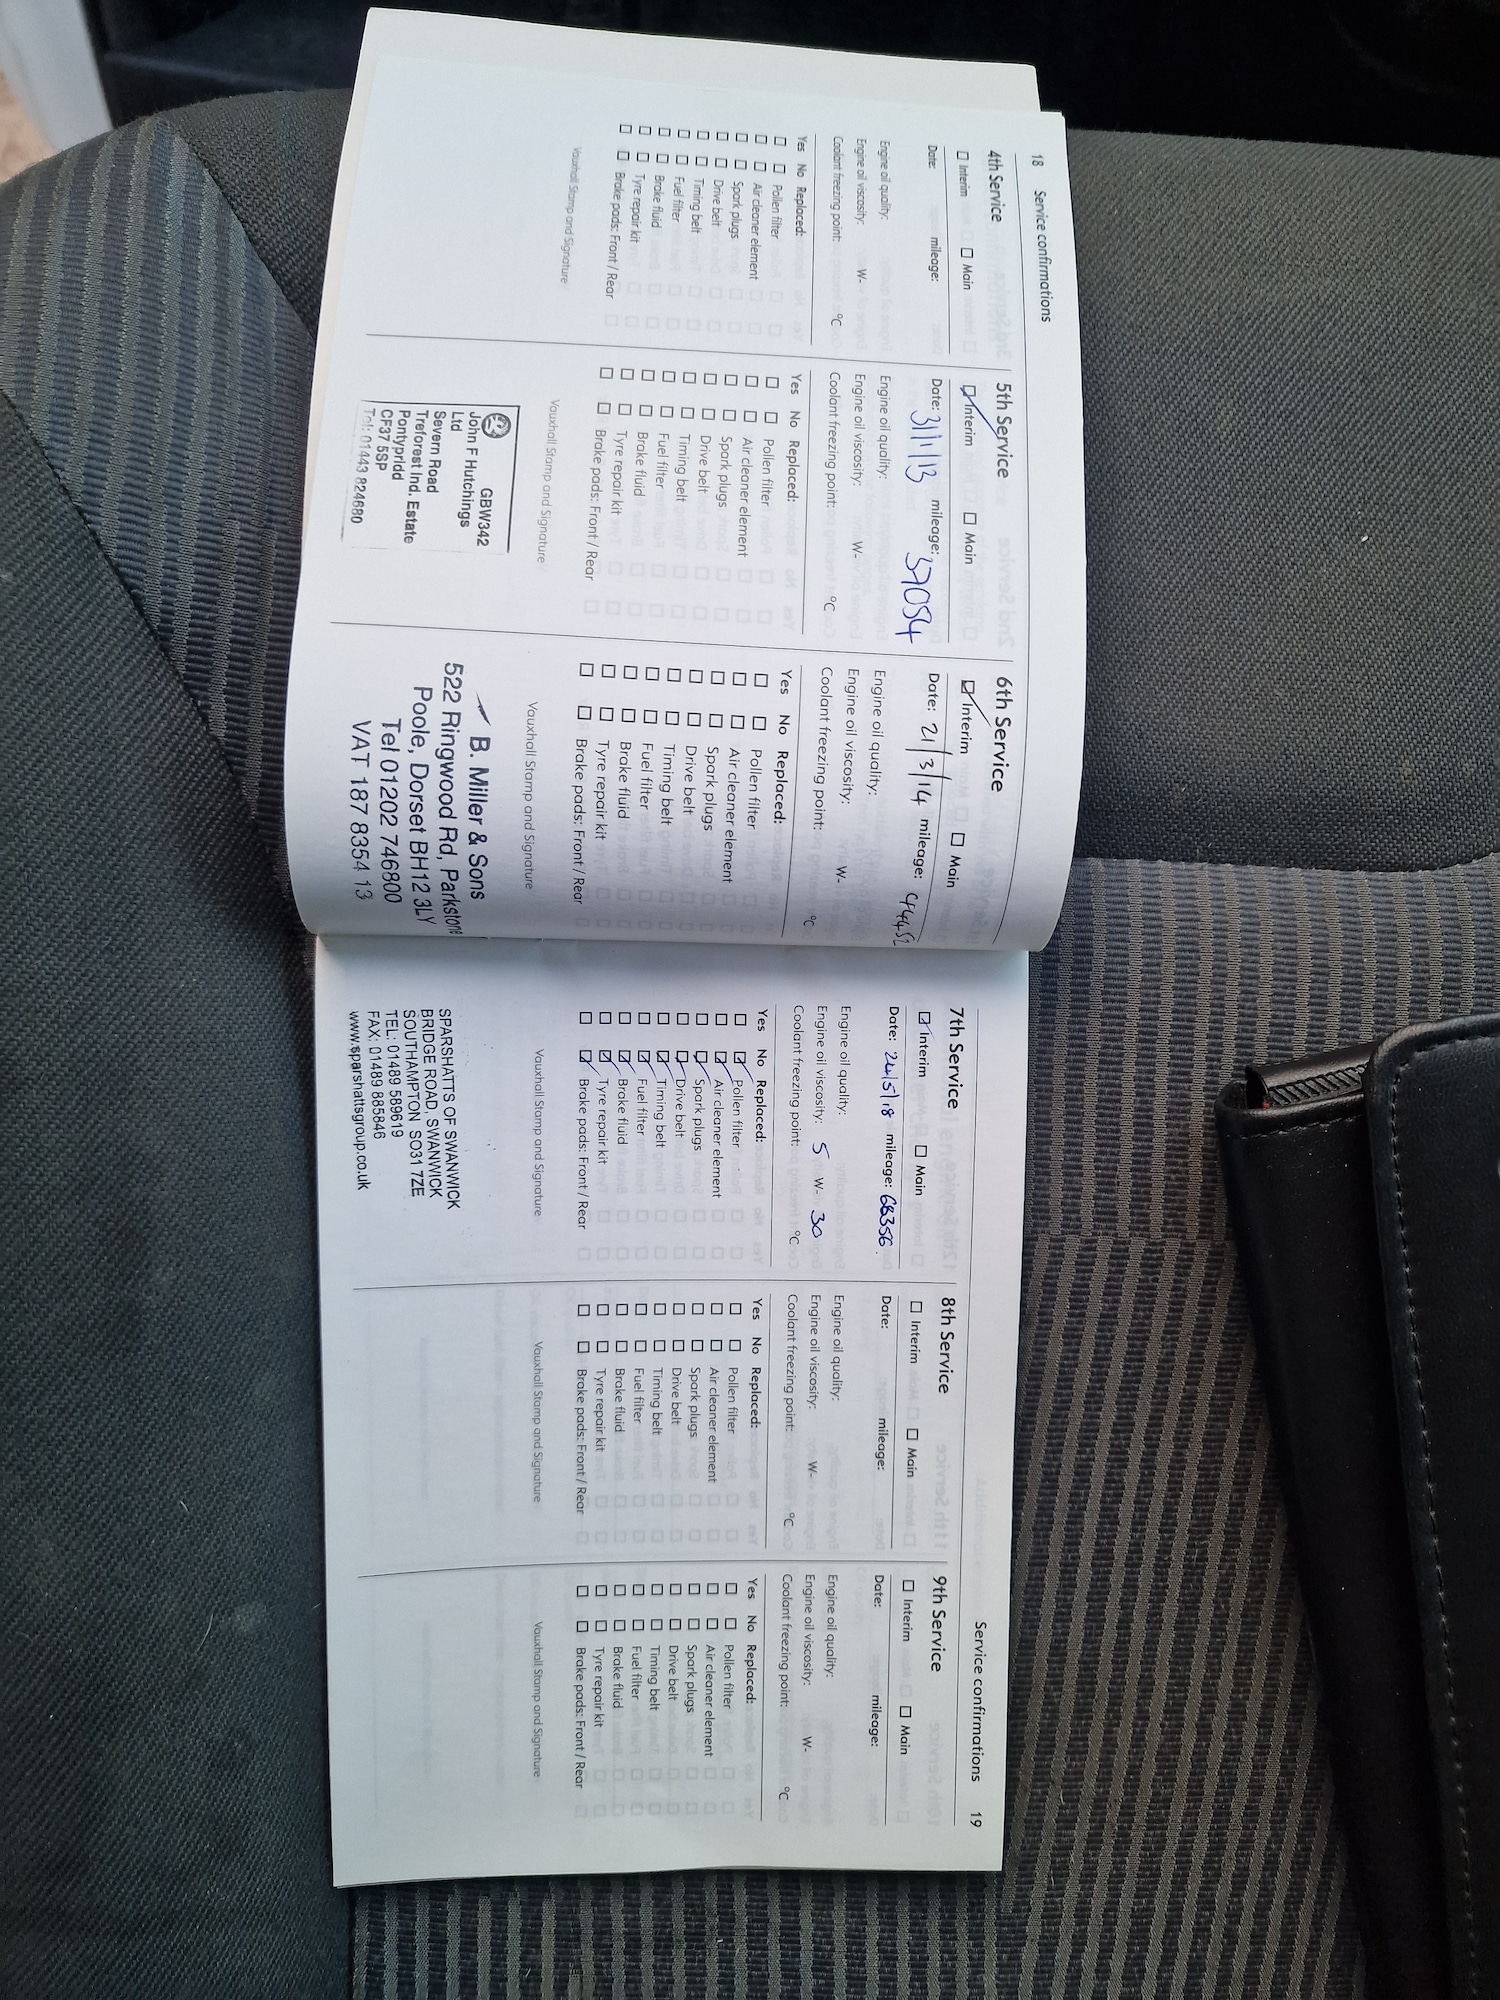 18 Service confirmations
4th Service
Interim Main
Date: mileage:
Engine oil quality:
Engine oil viscosity: W-
Coolant freezing point: °C
Yes No Replaced:
Pollen filter
Air cleaner element
Spark plugs
Drive belt
Timing belt
Fuel filter
Brake fluid
Tyre repair kit
Brake pads: Front / Rear
Vauxhall Stamp and Signature
5th Service
Interim Main
Date: 31/1/13 mileage: 37054
Engine oil quality:
Engine oil viscosity: W-
Coolant freezing point: °C
Yes No Replaced:
Pollen filter
Air cleaner element
Spark plugs
Drive belt
Timing belt
Fuel filter
Brake fluid
Tyre repair kit
Brake pads: Front / Rear
Vauxhall Stamp and Signature
GBW342
John F Hutchings
Ltd
Severn Road
Treforest Ind. Estate
Pontypridd
CF37 5SP
Tel: 01443 824680
6th Service
Interim Main
Date: 21/3/14 mileage: 44452
Engine oil quality:
Engine oil viscosity: W-
Coolant freezing point: °C
Yes No Replaced:
Pollen filter
Air cleaner element
Spark plugs
Drive belt
Timing belt
Fuel filter
Brake fluid
Tyre repair kit
Brake pads: Front / Rear
Vauxhall Stamp and Signature
B. Miller & Sons
522 Ringwood Rd, Parkstone
Poole, Dorset BH12 3LY
Tel 01202 746800
VAT 187 8354 13
Service confirmations 19
7th Service
Interim Main
Date: 24/5/18 mileage: 66356
Engine oil quality:
Engine oil viscosity: 5 W- 30
Coolant freezing point: °C
Yes No Replaced:
Pollen filter
Air cleaner element
Spark plugs
Drive belt
Timing belt
Fuel filter
Brake fluid
Tyre repair kit
Brake pads: Front / Rear
Vauxhall Stamp and Signature
SPARSHATTS OF SWANWICK
BRIDGE ROAD, SWANWICK
SOUTHAMPTON SO31 7ZE
TEL: 01489 589619
FAX: 01489 885846
www.sparshattsgroup.co.uk
8th Service
Interim Main
Date: mileage:
Engine oil quality:
Engine oil viscosity: W-
Coolant freezing point: °C
Yes No Replaced:
Pollen filter
Air cleaner element
Spark plugs
Drive belt
Timing belt
Fuel filter
Brake fluid
Tyre repair kit
Brake pads: Front / Rear
Vauxhall Stamp and Signature
9th Service
Interim Main
Date: mileage:
Engine oil quality:
Engine oil viscosity: W-
Coolant freezing point: °C
Yes No Replaced:
Pollen filter
Air cleaner element
Spark plugs
Drive belt
Timing belt
Fuel filter
Brake fluid
Tyre repair kit
Brake pads: Front / Rear
Vauxhall Stamp and Signature